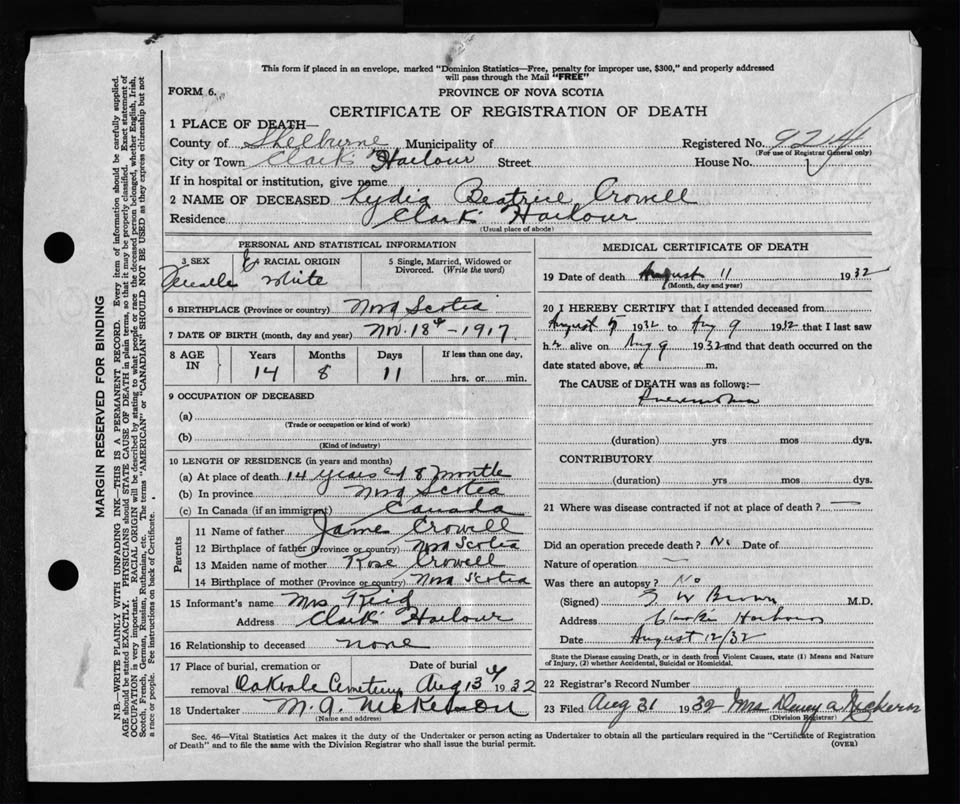 This form if placed in an envelope, marked "Dominion Statistics—Free, penalty for improper use, $300," and properly addressed
will pass through the Mail "FREE"
FORM 6.
PROVINCE OF NOVA SCOTIA
CERTIFICATE OF REGISTRATION OF DEATH
1 PLACE OF DEATH—
County of Shelburne Municipality of Registered No. 9214
(For use of Registrar General only)
City or Town Clark' Harbour Street House No.
If in hospital or institution, give name
2 NAME OF DECEASED Lydia Beatrice Crowell
Residence Clark' Harbour
(Usual place of abode)
PERSONAL AND STATISTICAL INFORMATION
3 SEX RACIAL ORIGIN 5 Single, Married, Widowed or
Divorced. (Write the word)
Female White
6 BIRTHPLACE (Province or country) Nova Scotia
7 DATE OF BIRTH (month, day and year) Nov. 18th - 1917
8 AGE IN Years Months Days If less than one day,
14 8 11 hrs. or min.
9 OCCUPATION OF DECEASED
(a)
(Trade or occupation or kind of work)
(b)
(Kind of industry)
10 LENGTH OF RESIDENCE (in years and months)
(a) At place of death 14 years & 8 months
(b) In province Nova Scotia
(c) In Canada (if an immigrant) Canada
Parents
11 Name of father James Crowell
12 Birthplace of father (Province or country) Nova Scotia
13 Maiden name of mother Rose Crowell
14 Birthplace of mother (Province or country) Nova Scotia
15 Informant's name Mrs Reid
Address Clark' Harbour
16 Relationship to deceased none
17 Place of burial, cremation or Date of burial
removal Oakvale Cemetery Aug 13th 1932
18 Undertaker N. A. Nickerson
(Name and address)
MEDICAL CERTIFICATE OF DEATH
19 Date of death August 11 1932
(Month, day and year)
20 I HEREBY CERTIFY that I attended deceased from
August 5 1932 to Aug 9 1932 that I last saw
her alive on Aug 9 1932 and that death occurred on the
date stated above, at m.
The CAUSE of DEATH was as follows:—
Pneumonia
(duration) yrs mos dys.
CONTRIBUTORY
(duration) yrs mos dys.
21 Where was disease contracted if not at place of death? —
Did an operation precede death? No Date of
Nature of operation —
Was there an autopsy? No
(Signed) W Brown M.D.
Address Clarks Harbour
Date August 12/32
State the Disease causing Death, or in death from Violent Causes, state (1) Means and Nature
of Injury, (2) whether Accidental, Suicidal or Homicidal.
22 Registrar's Record Number
23 Filed Aug 31 1932 Mrs Dewey A
(Division Registrar)
Sec. 46—Vital Statistics Act makes it the duty of the Undertaker or person acting as Undertaker to obtain all the particulars required in the "Certificate of Registration
of Death" and to file the same with the Division Registrar who shall issue the burial permit. (OVER)
MARGIN RESERVED FOR BINDING
N.B.—WRITE PLAINLY WITH UNFADING INK—THIS IS A PERMANENT RECORD. Every item of information should be carefully supplied.
AGE should be stated EXACTLY. PHYSICIANS should STATE CAUSE OF DEATH in plain terms, so that it may be properly classified. Exact statement of
OCCUPATION is very important. RACIAL ORIGIN will be described by stating to what people or race the deceased person belonged, whether English, Irish,
Scotch, French, German, Russian, Ruthenian, etc. The terms "AMERICAN" or "CANADIAN" SHOULD NOT BE USED as they express citizenship but not
a race or people. Fee instructions on back of Certificate.